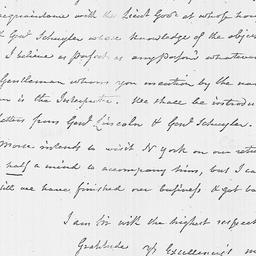 acquaintance with the Lieut Govr at whose hou
Genl Schuyler whose knowledge of the objec
I believe as perfect as any person's whatever
Gentleman whom you mention by the nam
n is the Interpreter. We shall be introduc
letters from Genl Lincoln & Genl Schuyler.
Morse intends to visit N York on our retu
half a mind to accompany him, but I ca
till we have finished our business & got ba
I am Sir with the highest respect
Gratitude yr Excellency's m